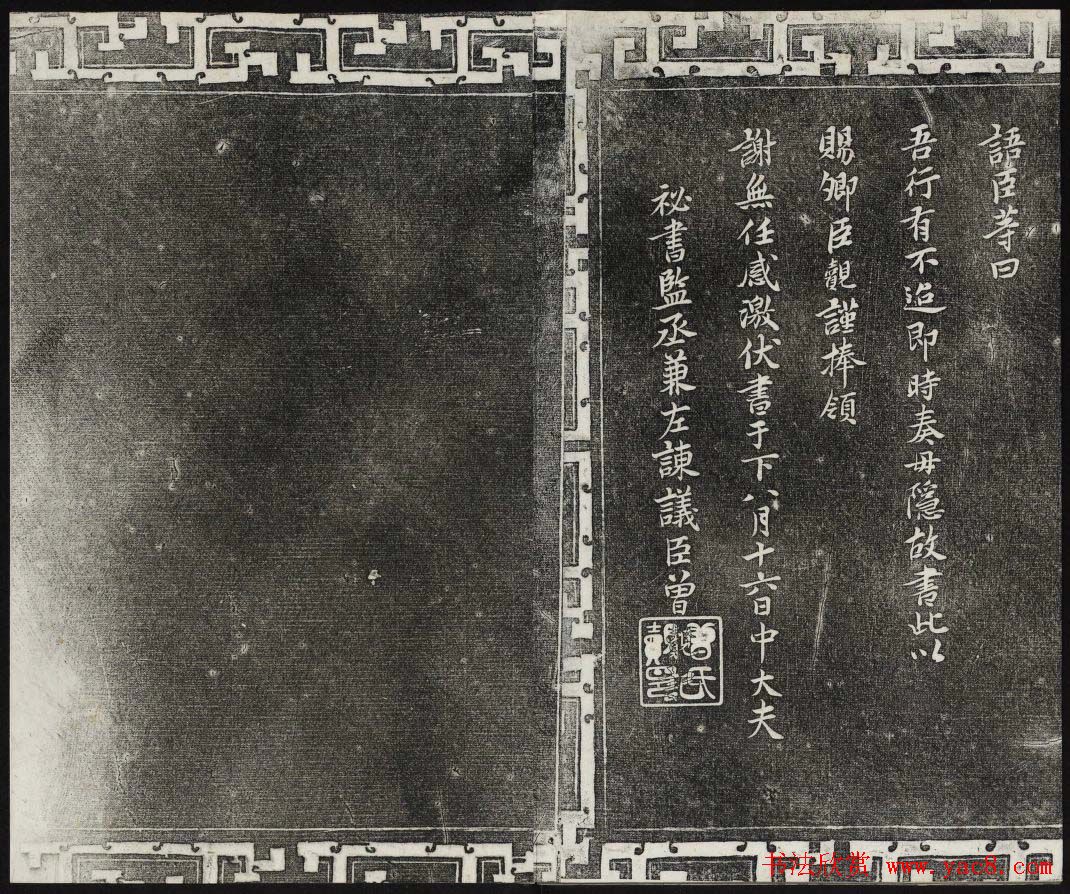 語臣等曰
吾行有不逮即時奏毋隱故書此以
賜卿臣觀謹捧領
謝無任感激伏書于下八月十六日中大夫
祕書監丞兼左諫議臣曾
书法欣赏 www.yac8.com